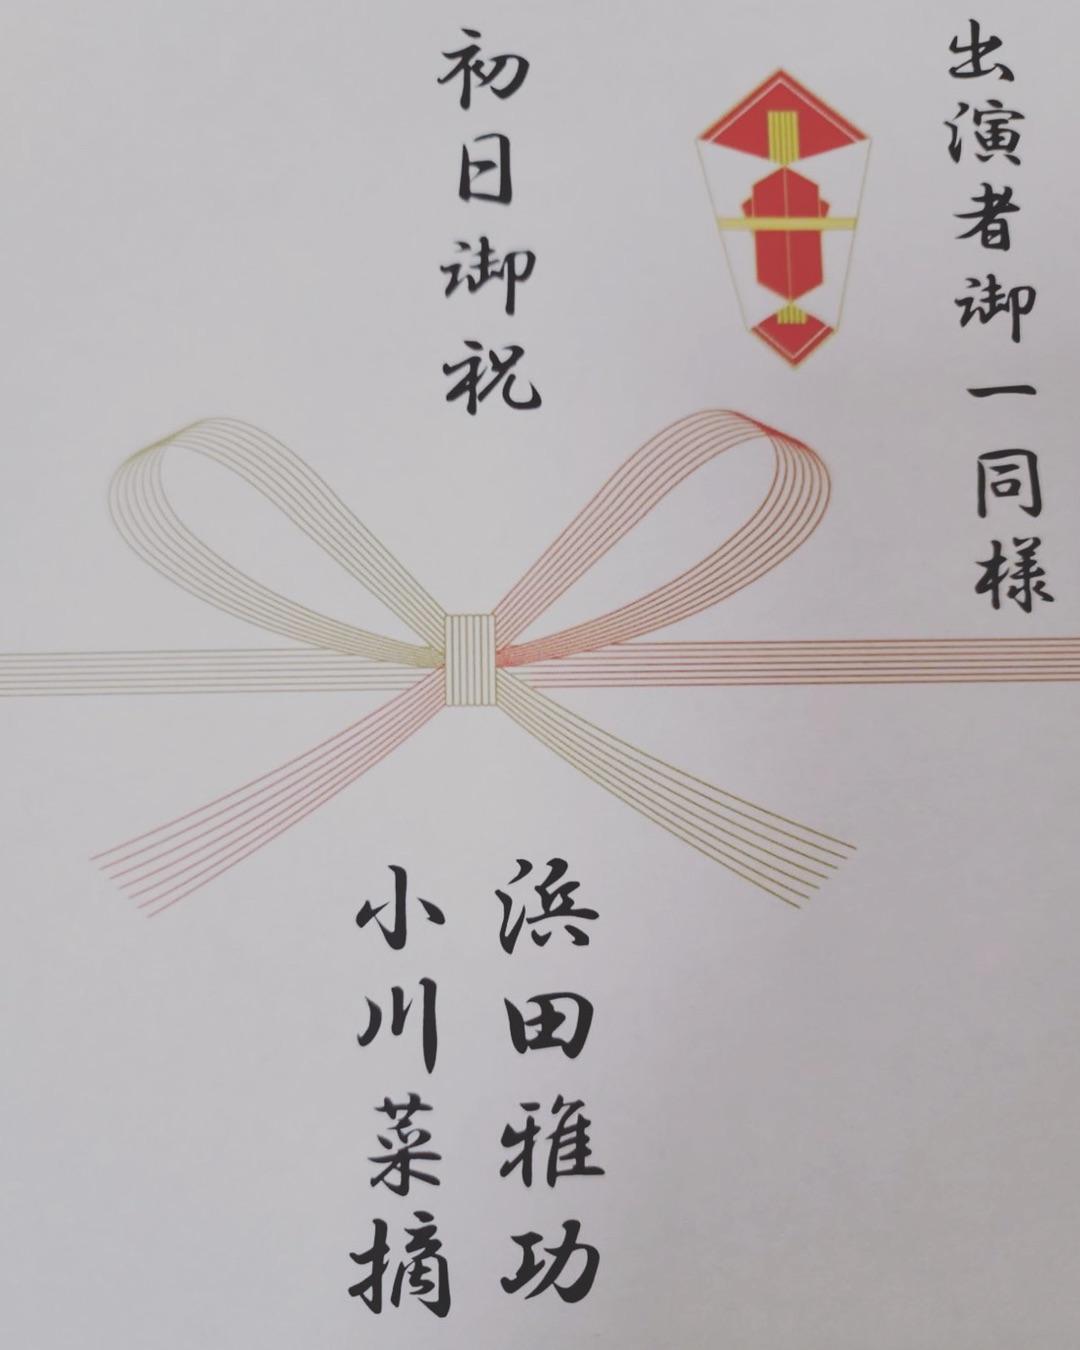 出演者御一同様
初日御祝
浜田雅功
小川菜摘